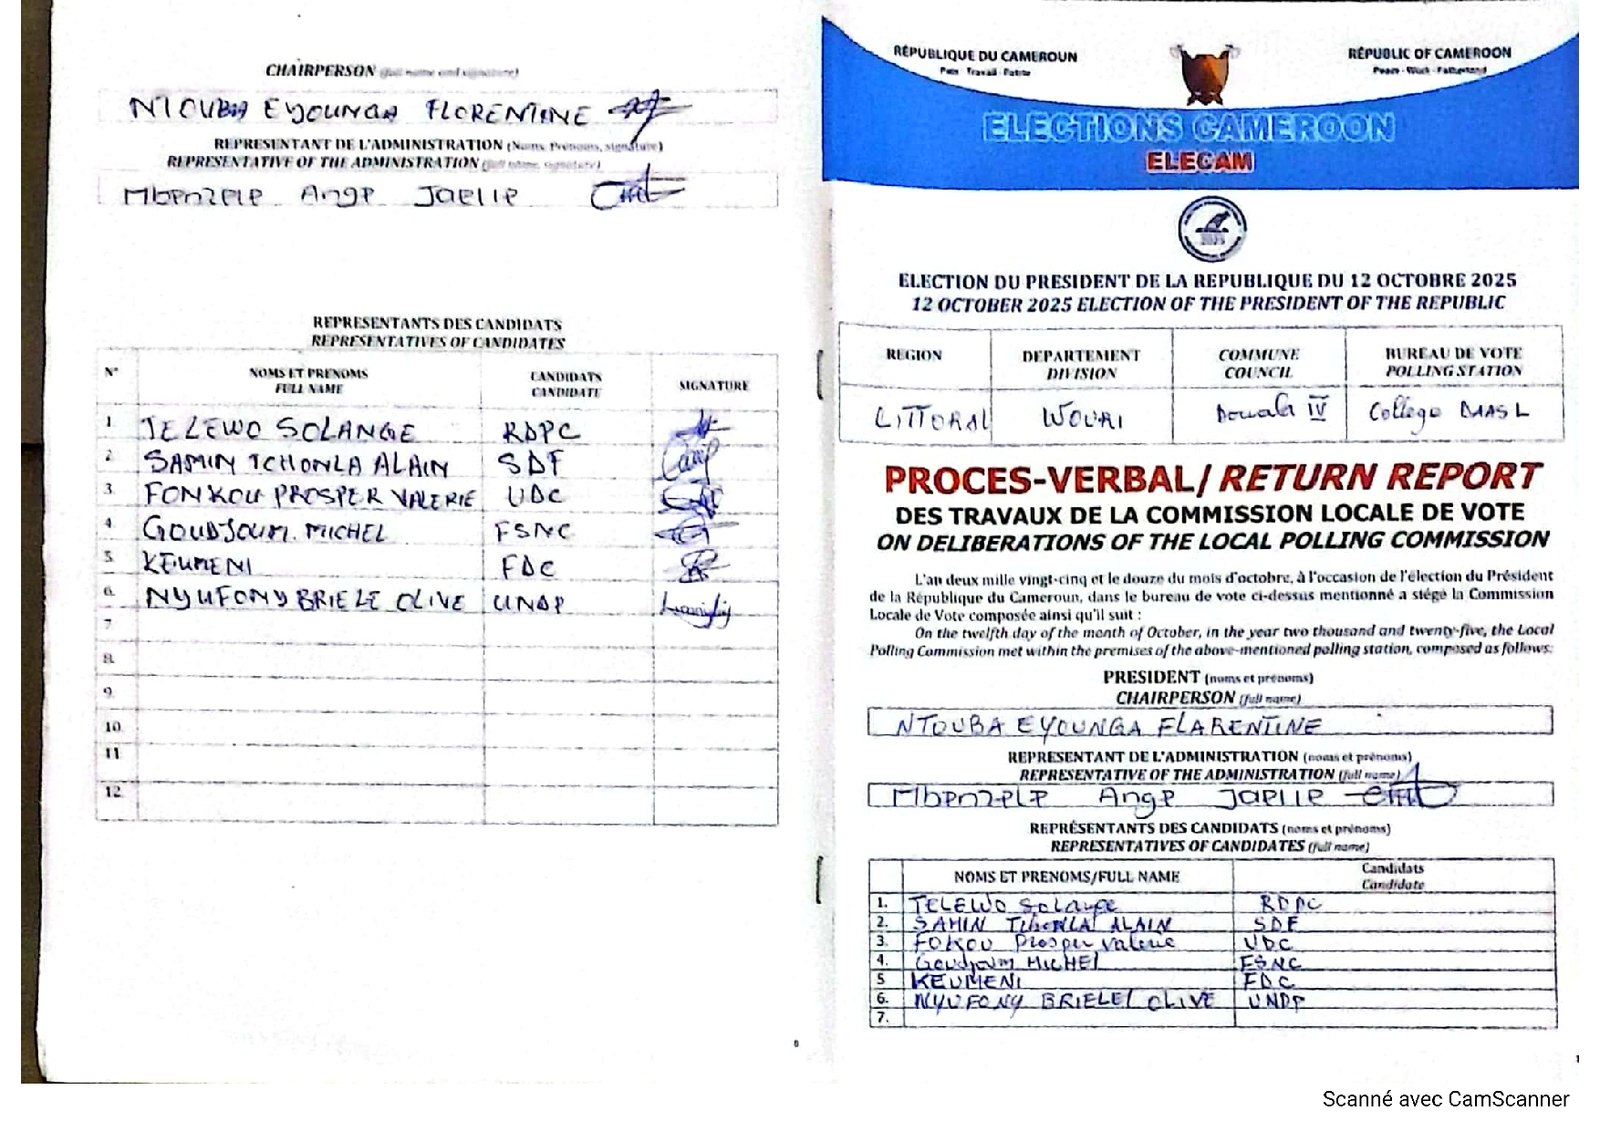 CHAIRPERSON (full name and signature)
NTOUBA EYOUNGA FLORENTINE
REPRESENTANT DE L'ADMINISTRATION (Noms, Prénoms, signature)
REPRESENTATIVE OF THE ADMINISTRATION (full name, signature)
Mbenzele Ange Jaelle
REPRESENTANTS DES CANDIDATS
REPRESENTATIVES OF CANDIDATES
N° NOMS ET PRENOMS FULL NAME CANDIDATS CANDIDATE SIGNATURE
1. TELEWO SOLANGE RDPC
2. SAMIN TCHONLA ALAIN SDF
3. FONKOU PROSPER VALERIE UDC
4. GOUDJOUM MICHEL FSNC
5. KEUMENI FDC
6. NYUFONY BRIELE OLIVE UNDP
7
8.
9.
10.
11
12
6
RÉPUBLIQUE DU CAMEROUN
Paix - Travail - Patrie
RÉPUBLIC OF CAMEROON
Peace - Work - Fatherland
ELECTIONS CAMEROON
ELECAM
2025
ELECTION DU PRESIDENT DE LA REPUBLIQUE DU 12 OCTOBRE 2025
12 OCTOBER 2025 ELECTION OF THE PRESIDENT OF THE REPUBLIC
REGION DEPARTEMENT DIVISION COMMUNE COUNCIL BUREAU DE VOTE POLLING STATION
LITTORAL WOURI Douala IV Collège
PROCES-VERBAL/ RETURN REPORT
DES TRAVAUX DE LA COMMISSION LOCALE DE VOTE
ON DELIBERATIONS OF THE LOCAL POLLING COMMISSION
L'an deux mille vingt-cinq et le douze du mois d'octobre, à l'occasion de l'élection du Président
de la République du Cameroun, dans le bureau de vote ci-dessus mentionné a siégé la Commission
Locale de Vote composée ainsi qu'il suit :
On the twelfth day of the month of October, in the year two thousand and twenty-five, the Local
Polling Commission met within the premises of the above-mentioned polling station, composed as follows:
PRESIDENT (noms et prénoms)
CHAIRPERSON (full name)
NTOUBA EYOUNGA FLARENTINE
REPRESENTANT DE L'ADMINISTRATION (noms et prénoms)
REPRESENTATIVE OF THE ADMINISTRATION (full name)
Mbenzele Ange Jaelle
REPRÉSENTANTS DES CANDIDATS (noms et prénoms)
REPRESENTATIVES OF CANDIDATES (full name)
NOMS ET PRENOMS/FULL NAME Candidats Candidate
1. TELEWO Solange RDPC
2. SAMIN TchonLA ALAIN SDF
3. FOKOU Prosper Valerie UDC
4. Goudjoum MICHEL FSNC
5 KEUMENI FDC
6. NYUFONY BRIELEL OLIVE UNDP
7.
1
Scanné avec CamScanner